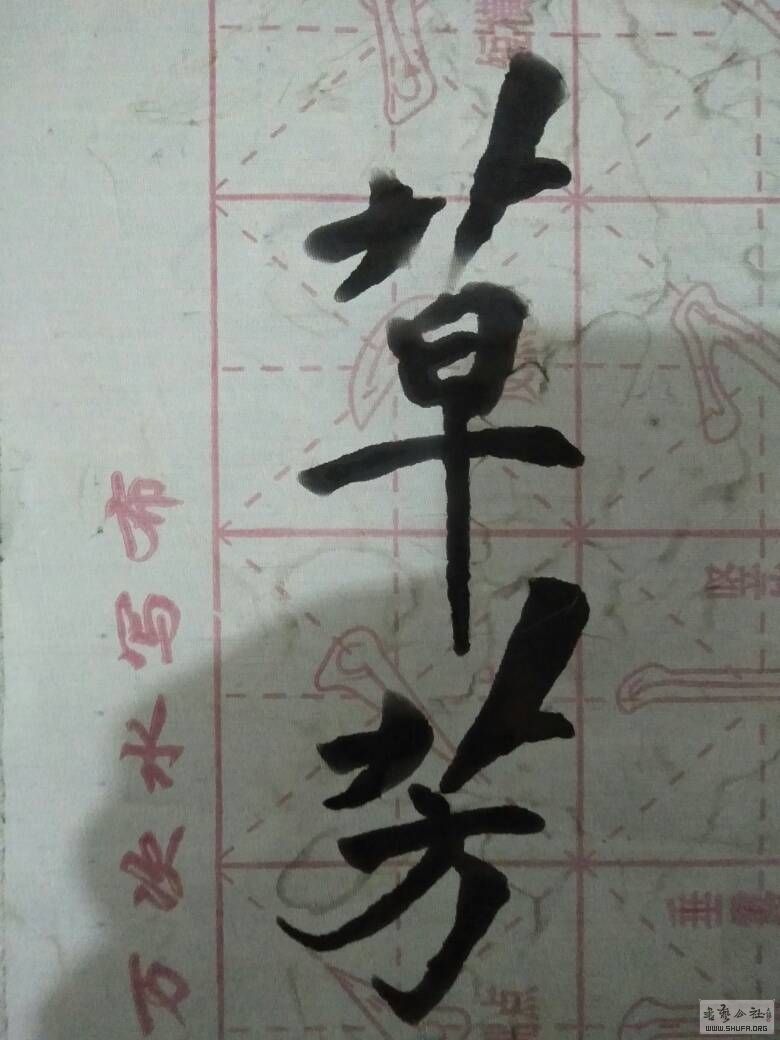 草芳
万次水写布
WWW.SHUFA.ORG